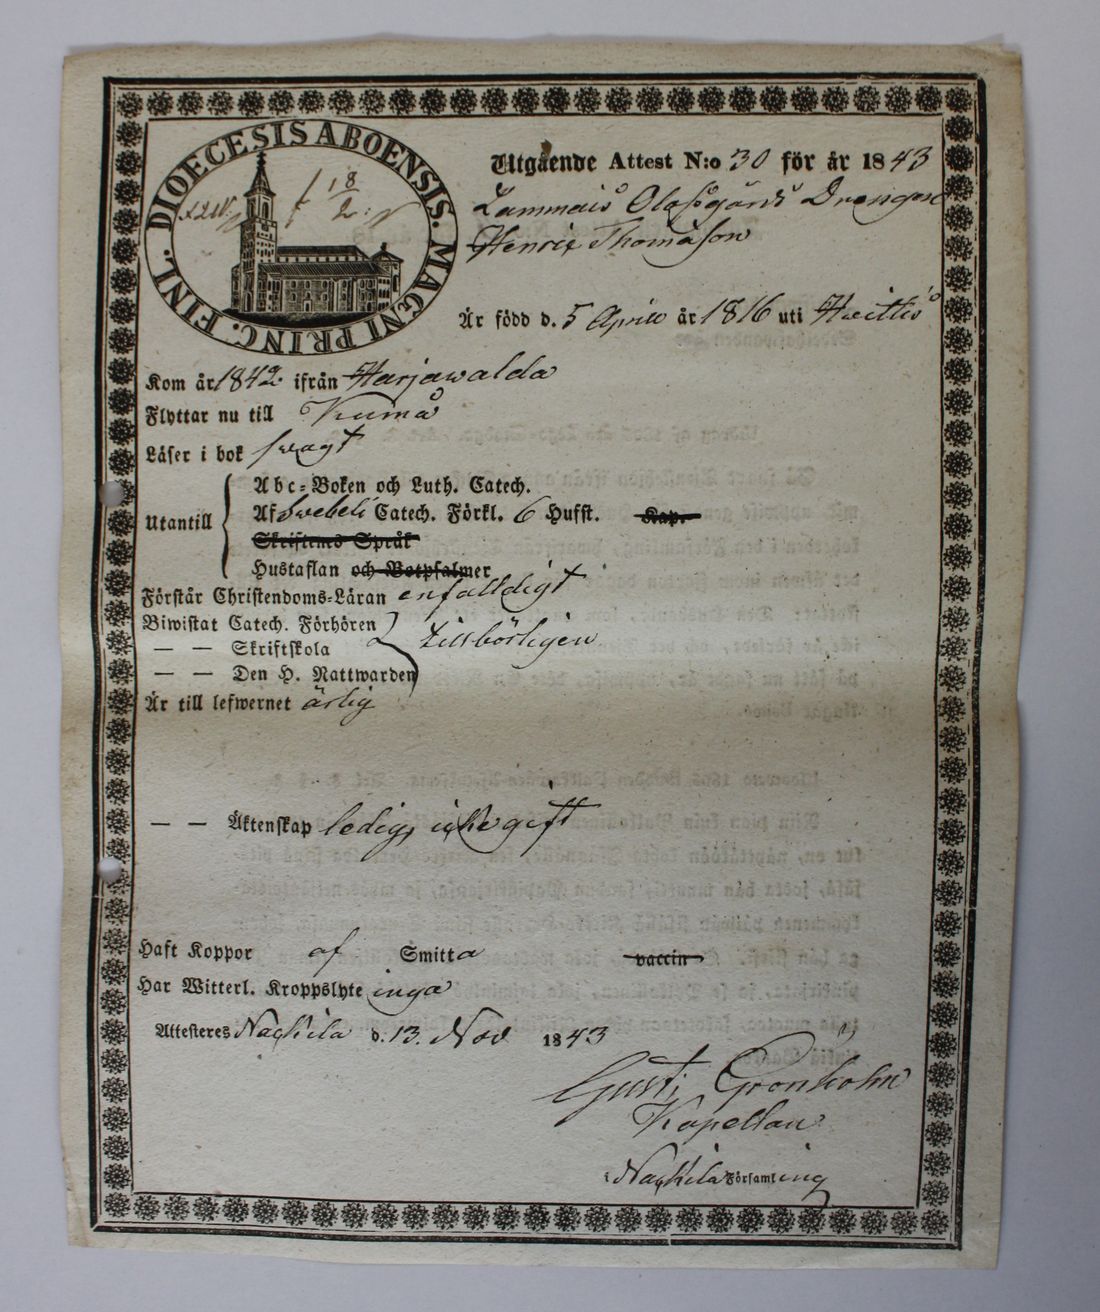 DIOECESIS ABOENSIS. MAGNI PRINC. FINL.
18
2
Utgående Attest N:o 30 för år 1843
Lammais Olofsgårds Drengen
Henric Thomasson
Är född d. 5 April år 1816 uti Hvittis
Kom år 1842 ifrån Harjawalda
Flyttar nu till Kumå
Läser i bok swagt
Utantill
Abc-Boken och Luth. Catech.
Af Swebeli Catech. Förkl. 6 Hufst. Kap.
Skriftens Språk
Hustaflan och Botpsalmer
Förstår Christendoms-Läran enfalldigt
Biwistat Catech. Förhören
— — Skriftskola tillbörligen
— — Den H. Nattwarden
Är till lefwernet ärlig
— — Äktenskap ledig, icke gift
Haft Koppor af Smitta vaccin
Har Witterl. Kroppslyte inga
Attesteres Nackila d. 13. Nov 1843
Gust: Gronholm
Kapellan
i Nackila Församling